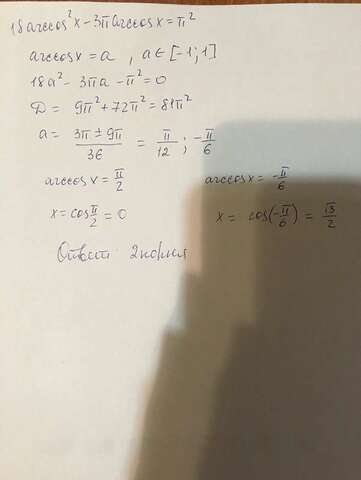 18arccos²x-3πarccosx=π²
arccosx=a, a∈[-1;1]
18a²-3πa-π²=0
D = 9π²+72π²=81π²
a = (3π±9π)/36 = π/12; -π/6
arccosx=π/2 arccosx=-π/6
x=cosπ/2=0 x= cos(-π/6)=√3/2
Ответ: 2корня